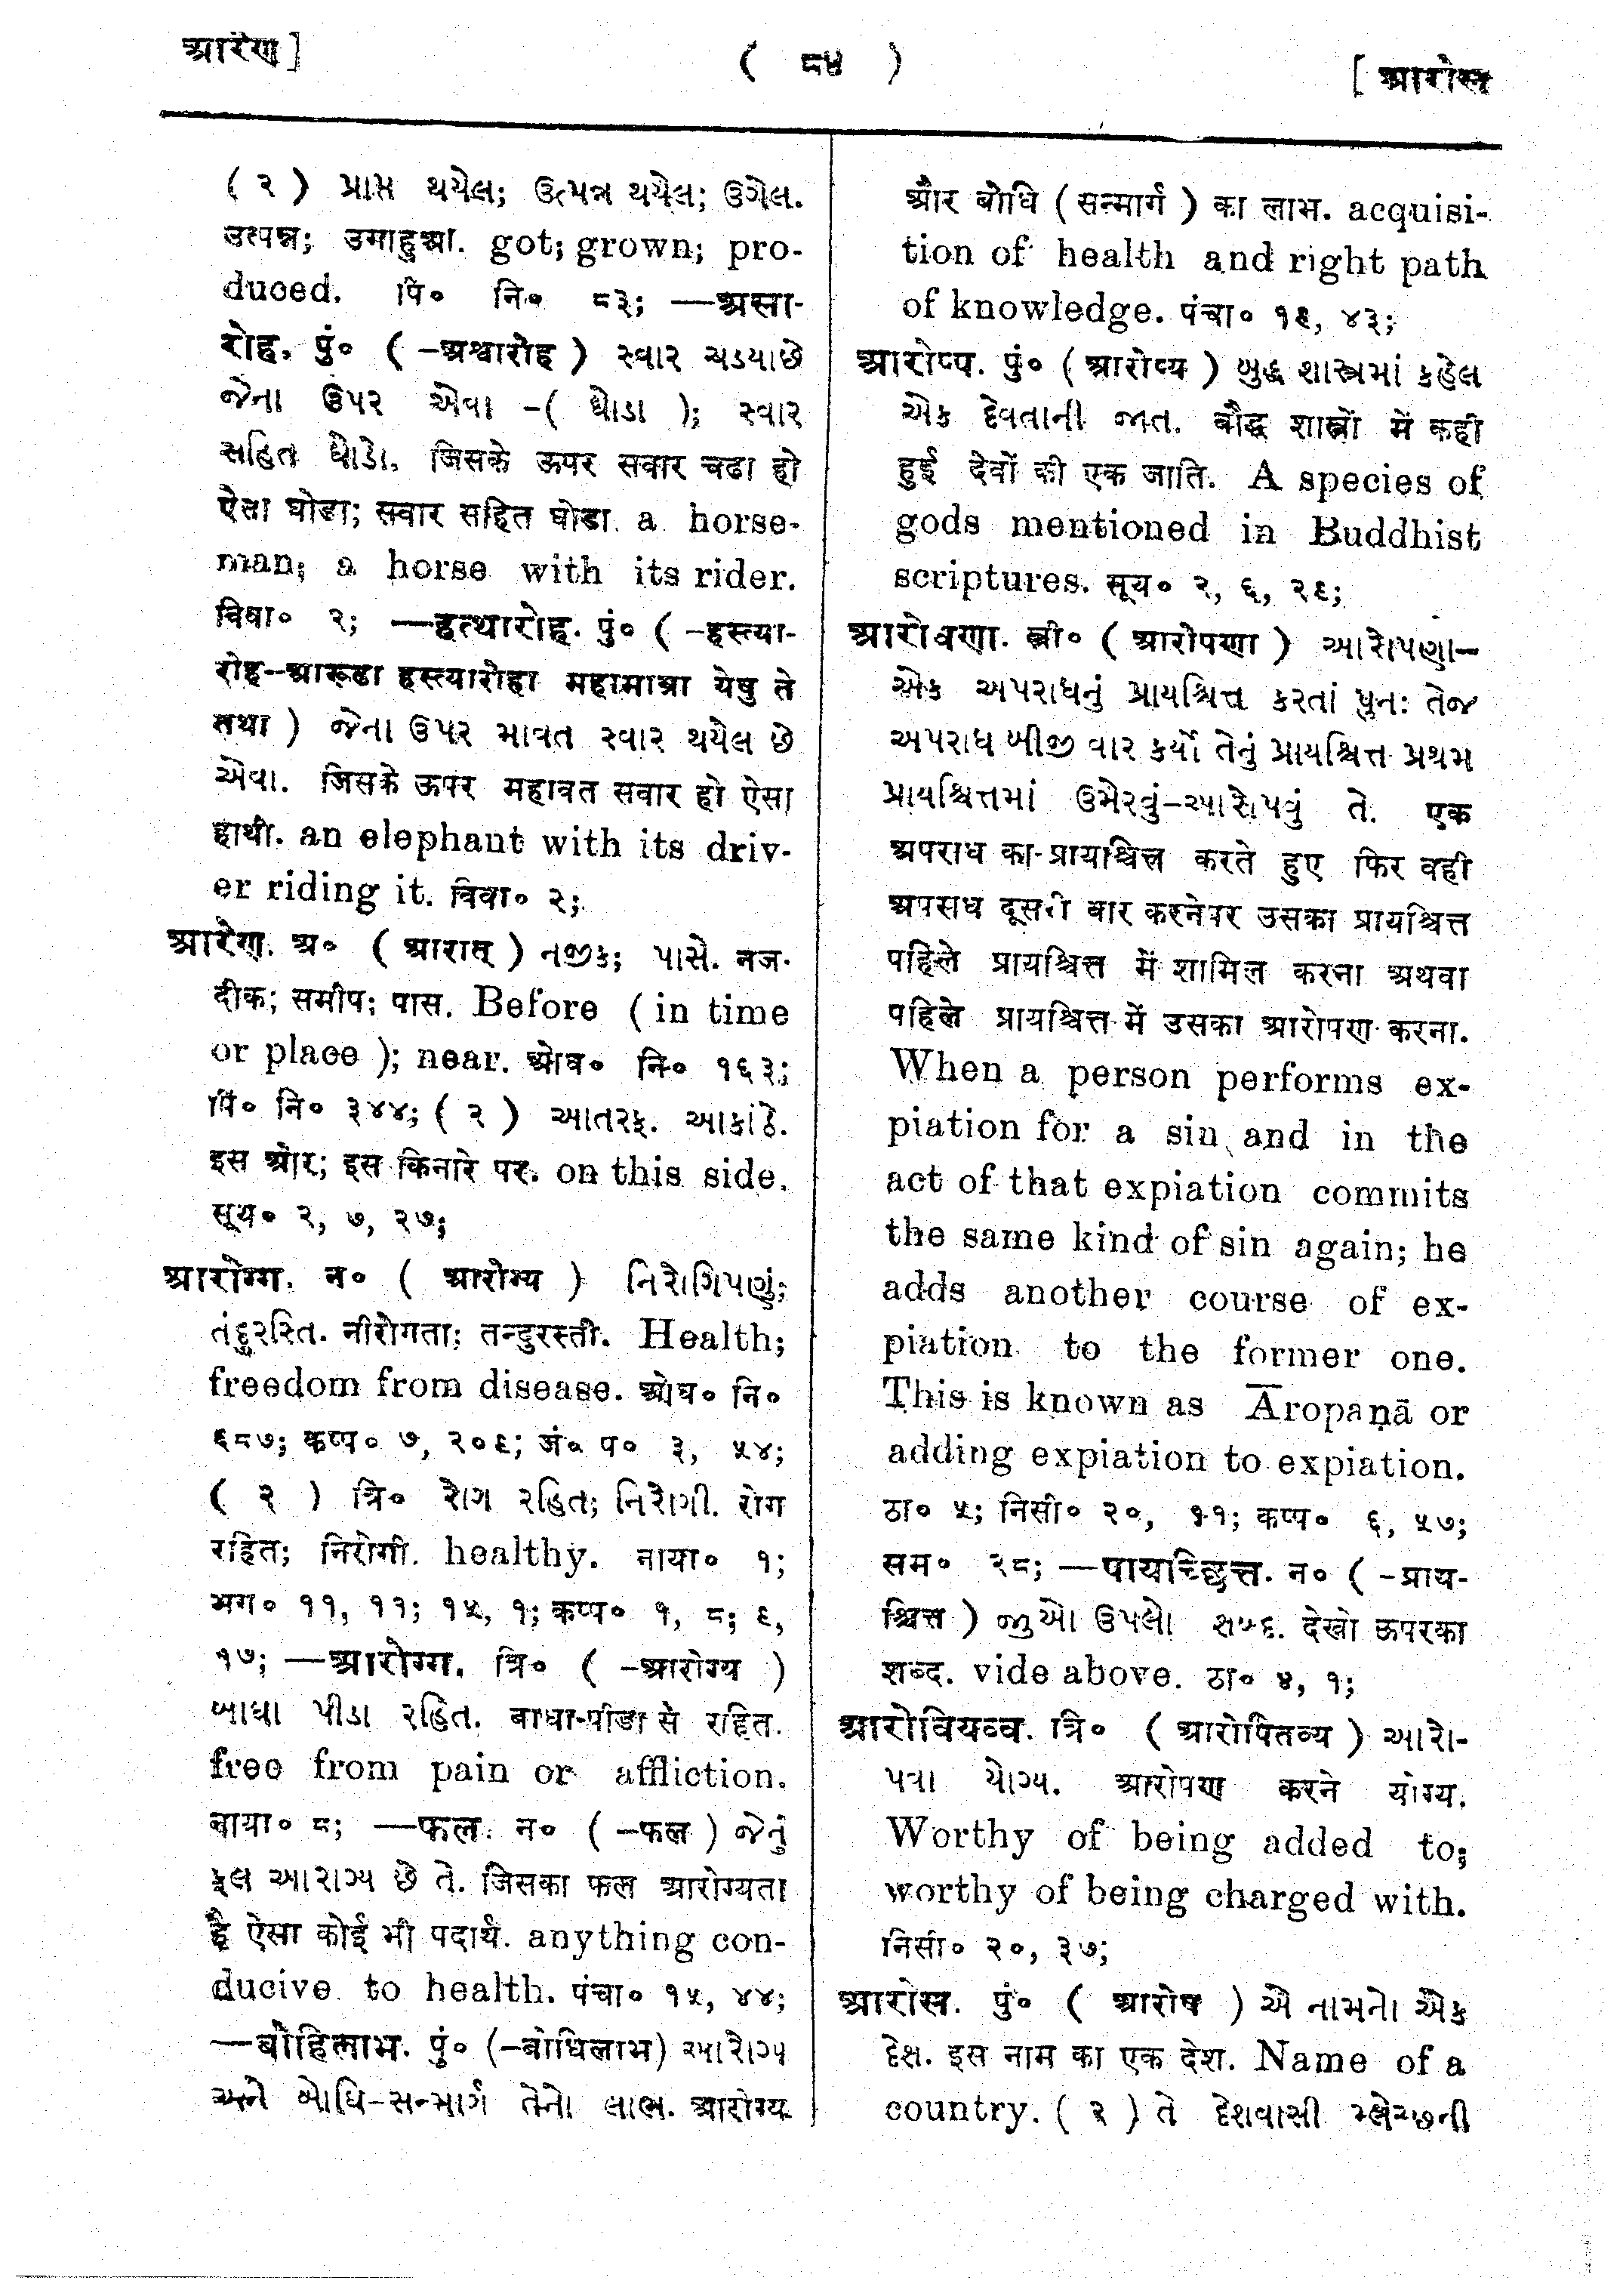 आरेण]
( ८४ )
[ आरोस
( २ ) પ્રાપ્ત થયેલ; ઉત્પન્ન થયેલ; ઉગેલ.
उत्पन्न; उगाहुआ. got; grown; pro-
duced. पिं० नि० ८३; —असा-
रोह. पुं० ( -अश्वारोह ) સ્વાર ચડયાછે
જેના ઉપર એવા -( ઘોડા ); સ્વાર
સહિત ઘોડો. जिसके ऊपर सवार चढा हो
ऐसा घोडा; सवार सहित घोडा. a horse-
man; a horse with its rider.
विवा० २; —हत्थारोह. पुं० ( -हस्त्या-
रोह--आरूढा हस्त्यारोहा महामात्रा येषु ते
तथा ) જેના ઉપર માવત સ્વાર થયેલ છે
એવા. जिसके ऊपर महावत सवार हो ऐसा
हाथी. an elephant with its driv-
er riding it. विवा० २;
आरेण. अ० ( आरात् ) નજીક; પાસે. नज-
दीक; समीप; पास. Before ( in time
or place ); near. ओव० नि० १६३;
पिं० नि० ३४४; ( २ ) આતરફ. આકાંઠે.
इस ओर; इस किनारे पर. on this side.
सूय० २, ७, २७;
आरोग्ग. न० ( आरोग्य ) નિરોગિપણું;
તંદુરસ્તિ. नीरोगता; तन्दुरस्ती. Health;
freedom from disease. ओघ० नि०
६८७; कप्प० ७, २०६; जं० प० ३, ५४;
( २ ) त्रि० રોગ રહિત; નિરોગી. रोग
रहित; निरोगी. healthy. नाया० १;
भग० ११, ११; १५, १; कप्प० १, ८; ६,
१७; —आरोग्ग. त्रि० ( -आरोग्य )
બાધા પીડા રહિત. बाधा-पीडा से रहित.
free from pain or affliction.
नाया० ८; —फल. न० ( -फल ) જેનું
ફલ આરોગ્ય છે તે. जिसका फल आरोग्यता
है ऐसा कोई भी पदार्थ. anything con-
ducive to health. पंचा० १५, ४४;
—बोहिलाभ. पुं० (-बोधिलाभ) આરોગ્ય
અને બોધિ-સન્માર્ગ તેનો લાભ. आरोग्य
और बोधि ( सन्मार्ग ) का लाभ. acquisi-
tion of health and right path
of knowledge. पंचा० १६, ४३;
आरोप्प. पुं० ( आरोप्य ) બુદ્ધ શાસ્ત્રમાં કહેલ
એક દેવતાની જાત. बौद्ध शास्त्रों में कही
हुई देवों की एक जाति. A species of
gods mentioned in Buddhist
scriptures. सूय० २, ६, २६;
आरोवणा. स्त्री० ( आरोपणा ) આરોપણા—
એક અપરાધનું પ્રાયશ્ચિત્ત કરતાં પુનઃ તેજ
અપરાધ બીજી વાર કર્યો તેનું પ્રાયશ્ચિત્ત પ્રથમ
પ્રાયશ્ચિત્તમાં ઉમેરવું-આરોપવું તે. एक
अपराध का प्रायश्चित्त करते हुए फिर वही
अपराध दूसरी बार करनेपर उसका प्रायश्चित्त
पहिले प्रायश्चित्त में शामिल करना अथवा
पहिले प्रायश्चित्त में उसका आरोपण करना.
When a person performs ex-
piation for a sin and in the
act of that expiation commits
the same kind of sin again; he
adds another course of ex-
piation to the former one.
This is known as Āropaṇā or
adding expiation to expiation.
ठा० ५; निसी० २०, ११; कप्प० ६, ५७;
सम० २८; —पायच्छित्त. न० ( -प्राय-
श्चित्त ) જુઓ ઉપલો શબ્દ. देखो ऊपरका
शब्द. vide above. ठा० ४, १;
आरोवियव्व. त्रि० ( आरोपितव्य ) આરો-
પવા યોગ્ય. आरोपण करने योग्य.
Worthy of being added to;
worthy of being charged with.
निसी० २०, ३७;
आरोस. पुं० ( आरोष ) એ નામનો એક
દેશ. इस नाम का एक देश. Name of a
country. ( २ ) તે દેશવાસી મ્લેચ્છની